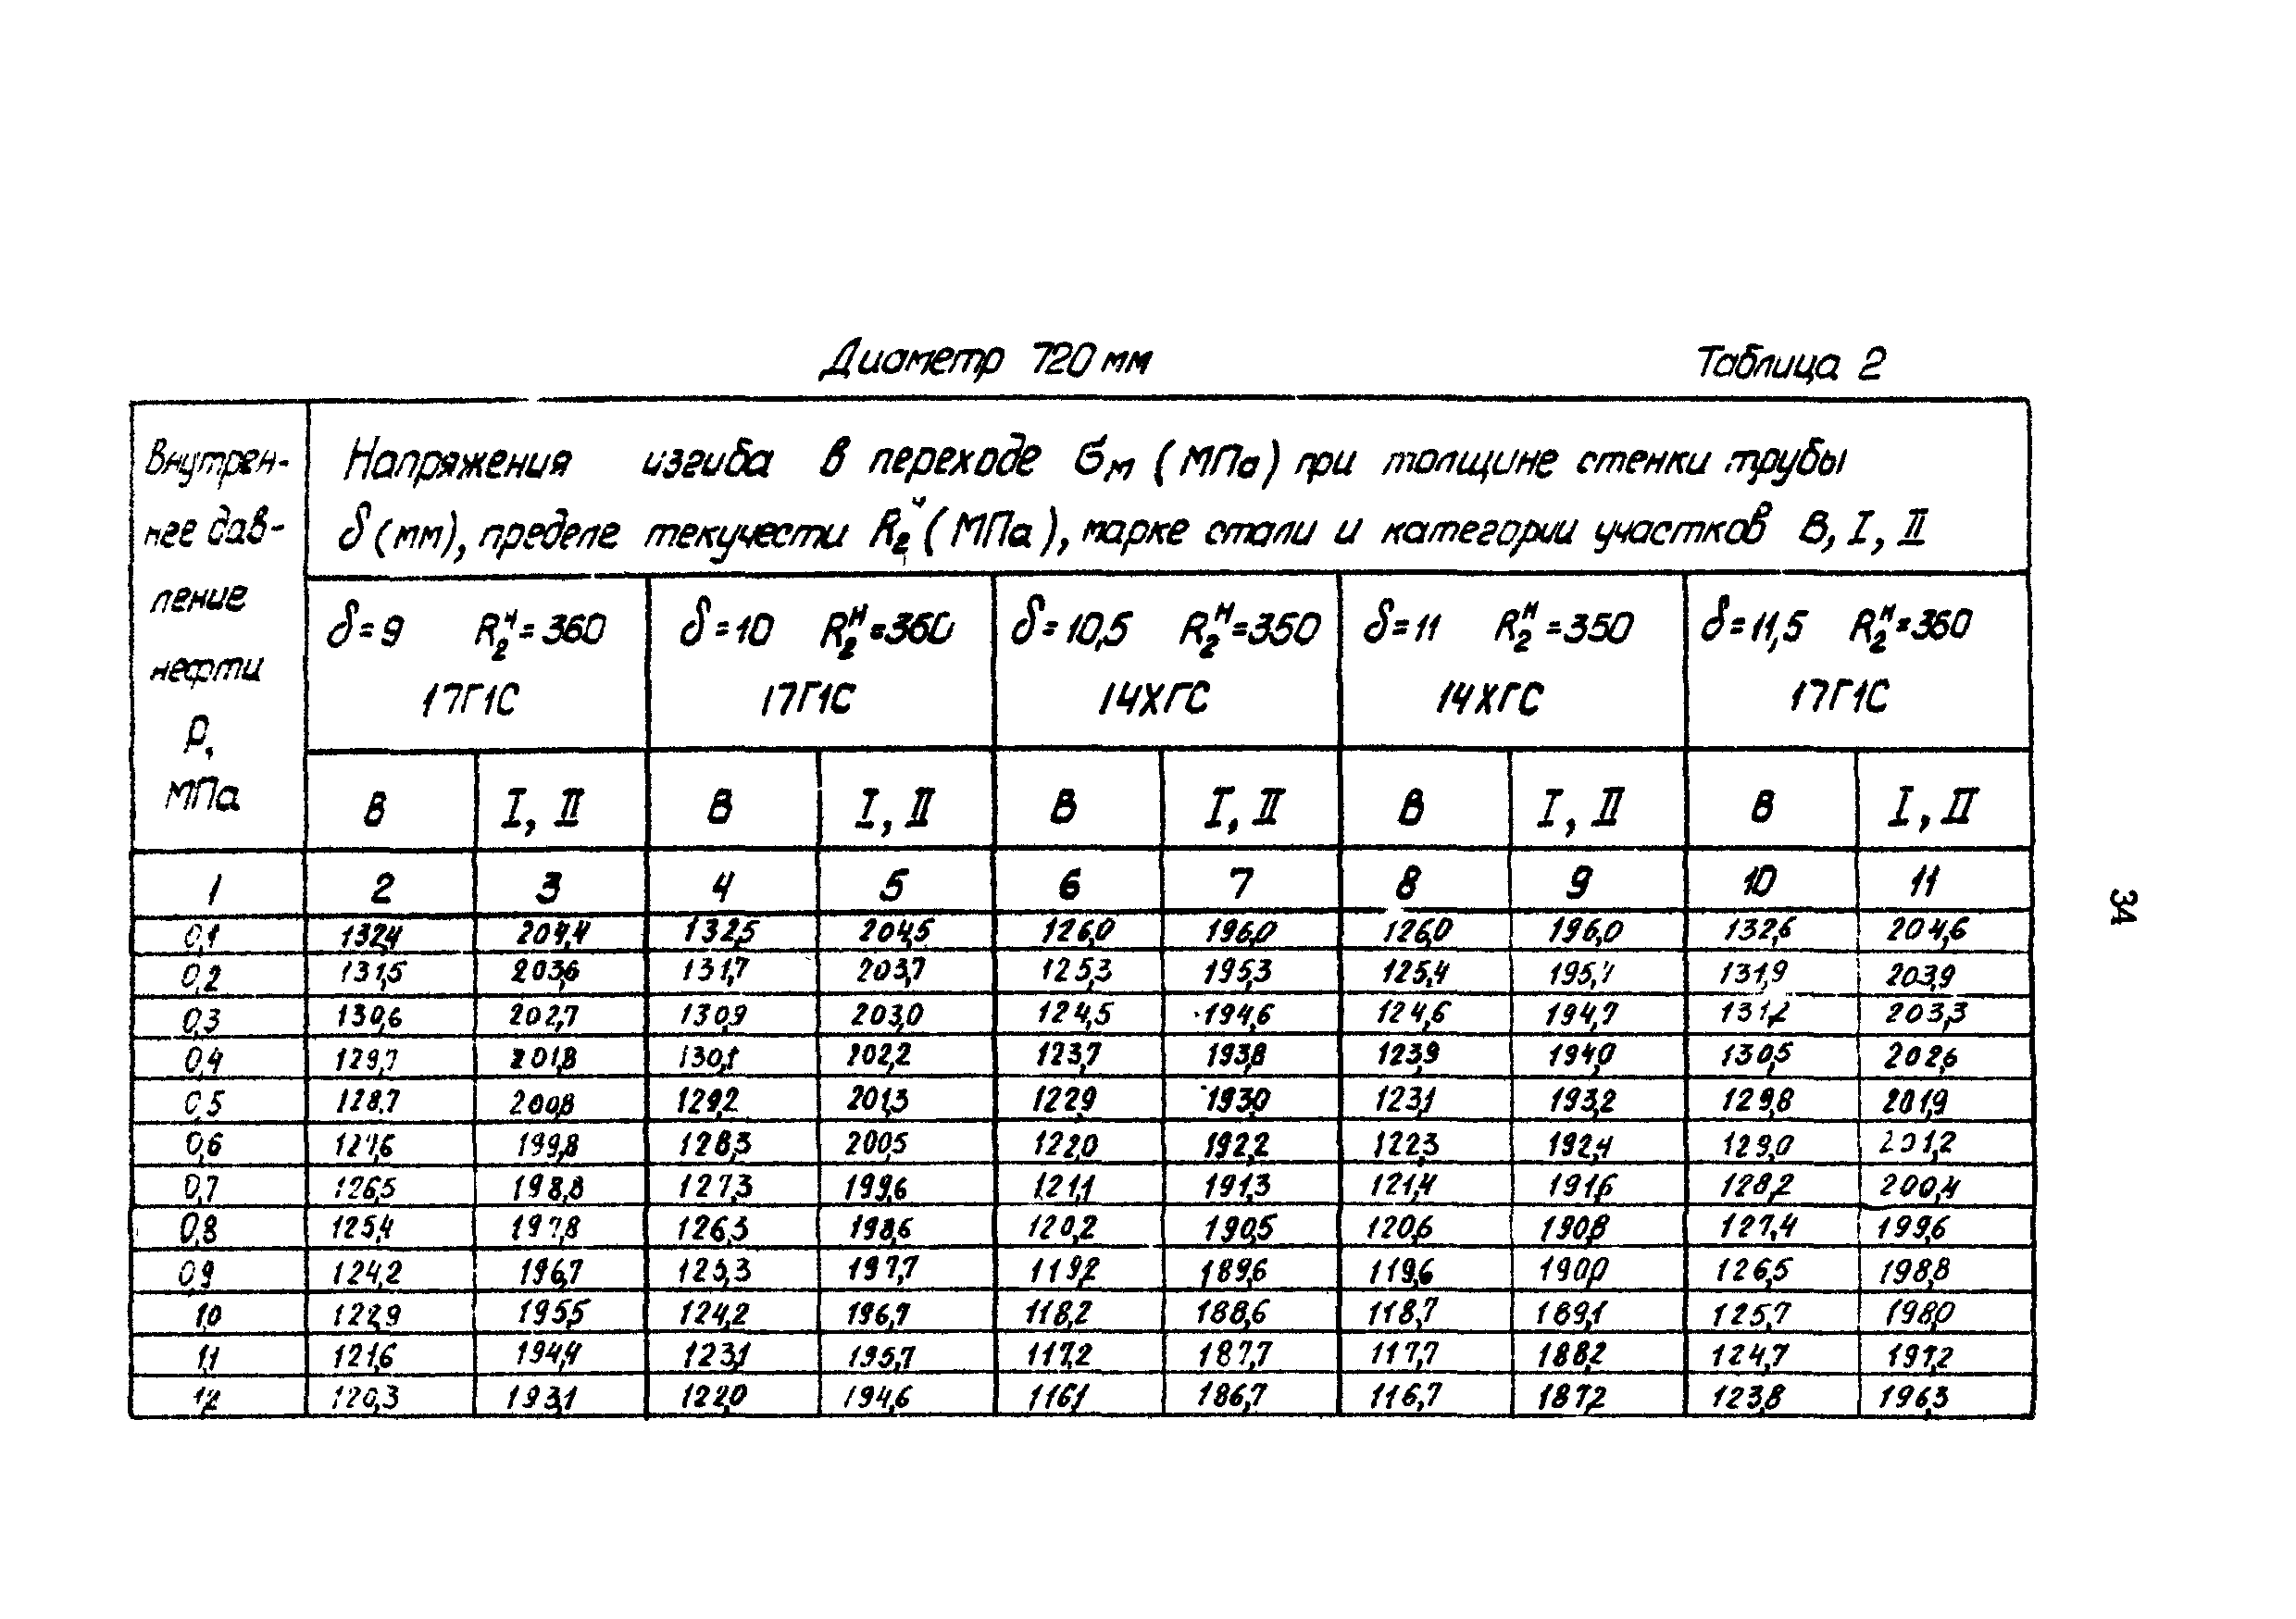 Диаметр 720 мм Таблица 2
Внутрен- Напряжения изгиба в переходе σм (МПа) при толщине стенки трубы
нее дав- δ (мм), пределе текучести R₂ᴴ (МПа), марке стали и категории участков В, I, II
ление
нефти
Р,
МПа
δ=9 R₂ᴴ=360 δ=10 R₂ᴴ=360 δ=10,5 R₂ᴴ=350 δ=11 R₂ᴴ=350 δ=11,5 R₂ᴴ=360
17Г1С 17Г1С 14ХГС 14ХГС 17Г1С
В I, II В I, II В I, II В I, II В I, II
1 2 3 4 5 6 7 8 9 10 11
0,1 132,4 204,4 132,5 204,5 126,0 196,0 126,0 196,0 132,6 204,6
0,2 131,5 203,6 131,7 203,7 125,3 195,3 125,4 195,4 131,9 203,9
0,3 130,6 202,7 130,9 203,0 124,5 194,6 124,6 194,7 131,2 203,3
0,4 129,7 201,8 130,1 202,2 123,7 193,8 123,9 194,0 130,5 202,6
0,5 128,7 200,8 129,2 201,3 122,9 193,0 123,1 193,2 129,8 201,9
0,6 127,6 199,8 128,3 200,5 122,0 192,2 122,3 192,4 129,0 201,2
0,7 126,5 198,8 127,3 199,6 121,1 191,3 121,4 191,6 128,2 200,4
0,8 125,4 197,8 126,3 198,6 120,2 190,5 120,6 190,8 127,4 199,6
0,9 124,2 196,7 125,3 197,7 119,2 189,6 119,6 190,0 126,5 198,8
1,0 122,9 195,5 124,2 196,7 118,2 188,6 118,7 189,1 125,7 198,0
1,1 121,6 194,4 123,1 195,7 117,2 187,7 117,7 188,2 124,7 197,2
1,2 120,3 193,1 122,0 194,6 116,1 186,7 116,7 187,2 123,8 196,3
34